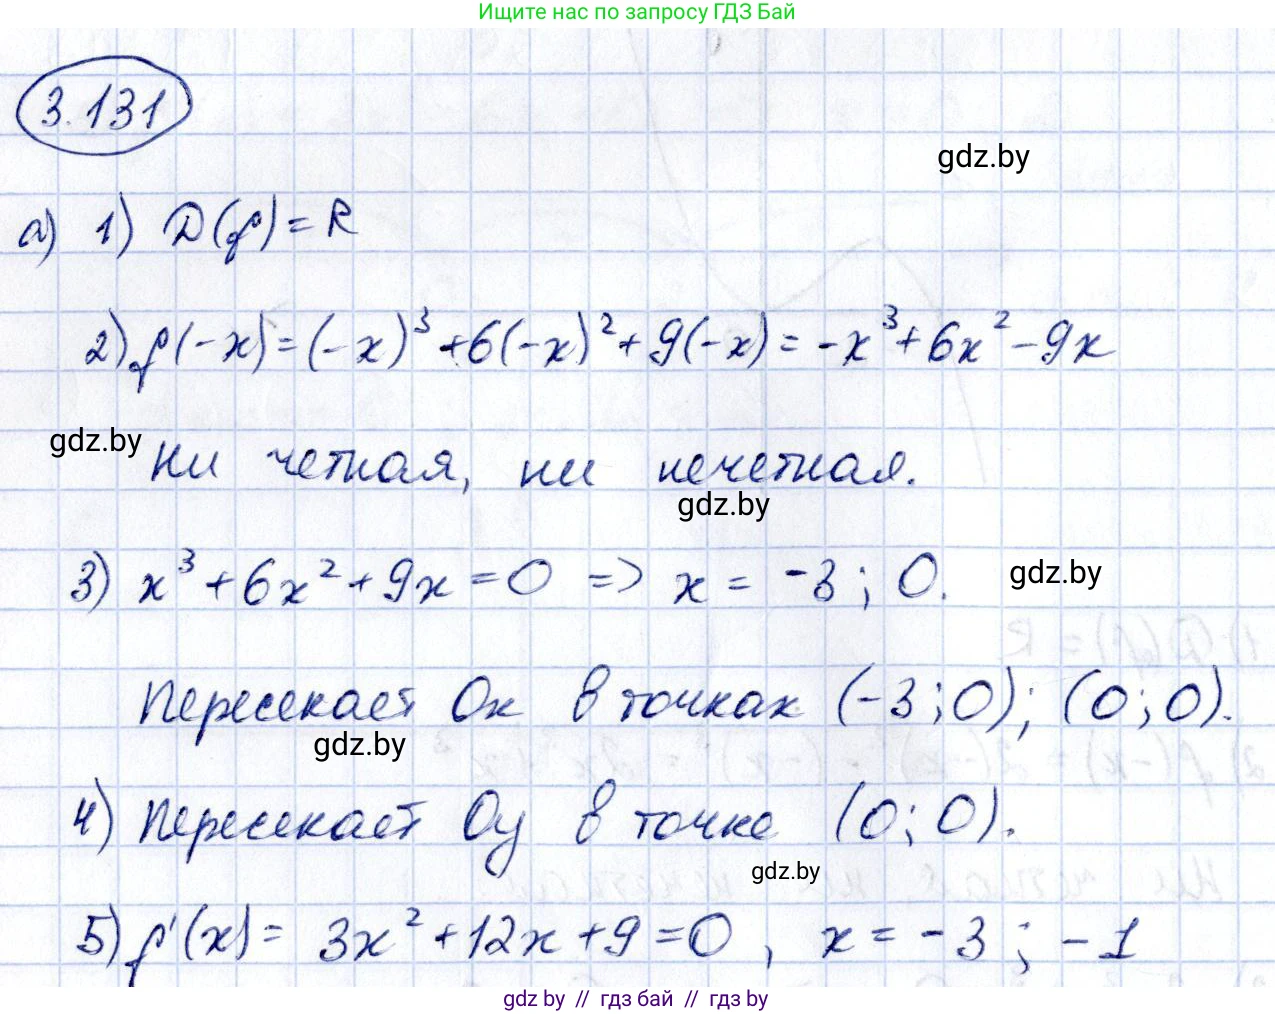 Ищите нас по запросу ГДЗ Бай
3.131
gdz.by
а) 1) D(f) = R
2) f(-x) = (-x)³ + 6(-x)² + 9(-x) = -x³ + 6x² - 9x
gdz.by
Ни четная, ни нечетная.
gdz.by
3) x³ + 6x² + 9x = 0 => x = -3; 0.
gdz.by
Пересекает Ox в точках (-3; 0); (0; 0).
gdz.by
4) Пересекает Oy в точке (0; 0).
gdz.by
5) f'(x) = 3x² + 12x + 9 = 0, x = -3; -1
gdz by // гдз бай // гдз by